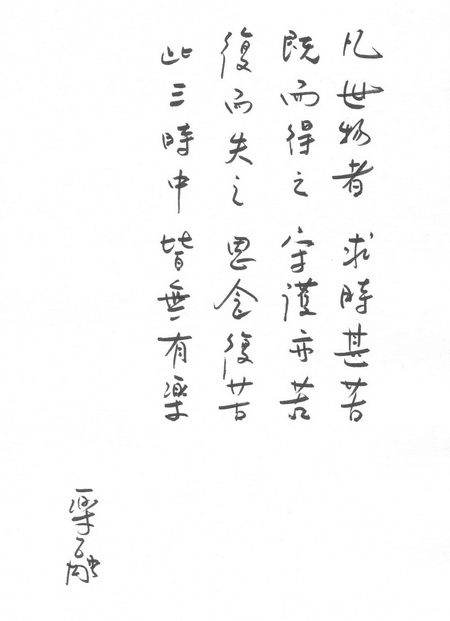 凡世物者 求時甚苦
既而得之 守護亦苦
復而失之 思念復苦
此三時中 皆無有樂